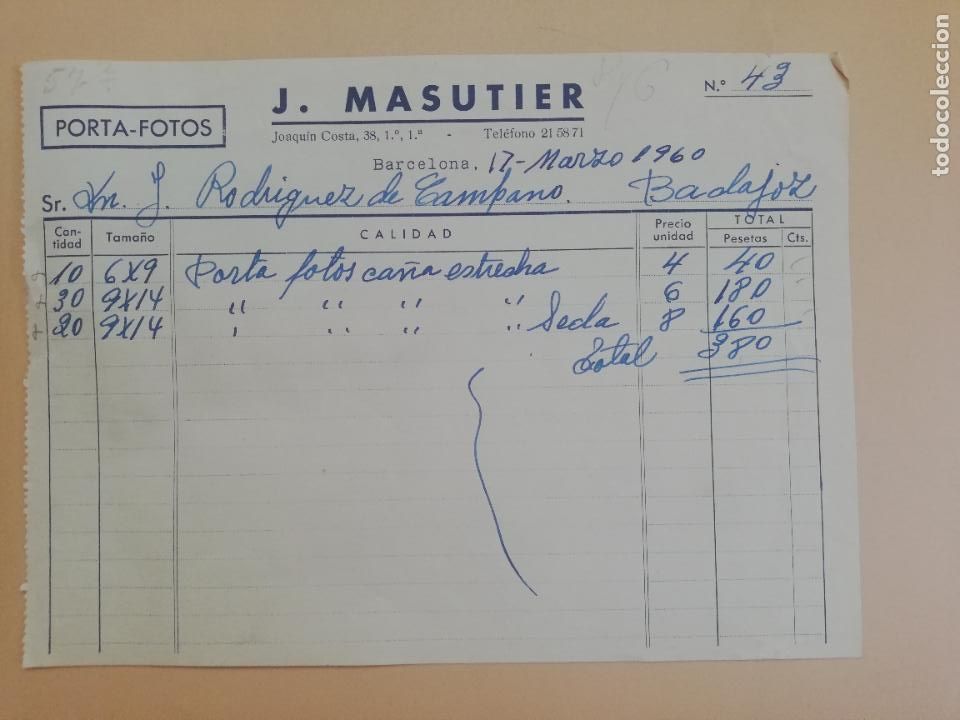 57
J. MASUTIER
N.º 43
PORTA-FOTOS
Joaquín Costa, 38, 1.º, 1.ª - Teléfono 21 58 71
Barcelona, 17-Marzo 1960
Sr. Dn. J. Rodriguez de Campano. Badajoz
Can-tidad Tamaño CALIDAD Precio unidad TOTAL Pesetas Cts.
10 6X9 Porta fotos caña estrecha 4 40
30 9X14 " " " " 6 180
20 9X14 " " " " Seda 8 160
Total 380
todocoleccion